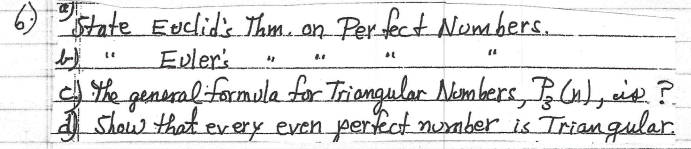 6.) a) State Euclid's Thm. on Perfect Numbers.
b) " Euler's " " " "
c) The general formula for Triangular Numbers, P₃(n), is ?
d) Show that every even perfect number is Triangular.